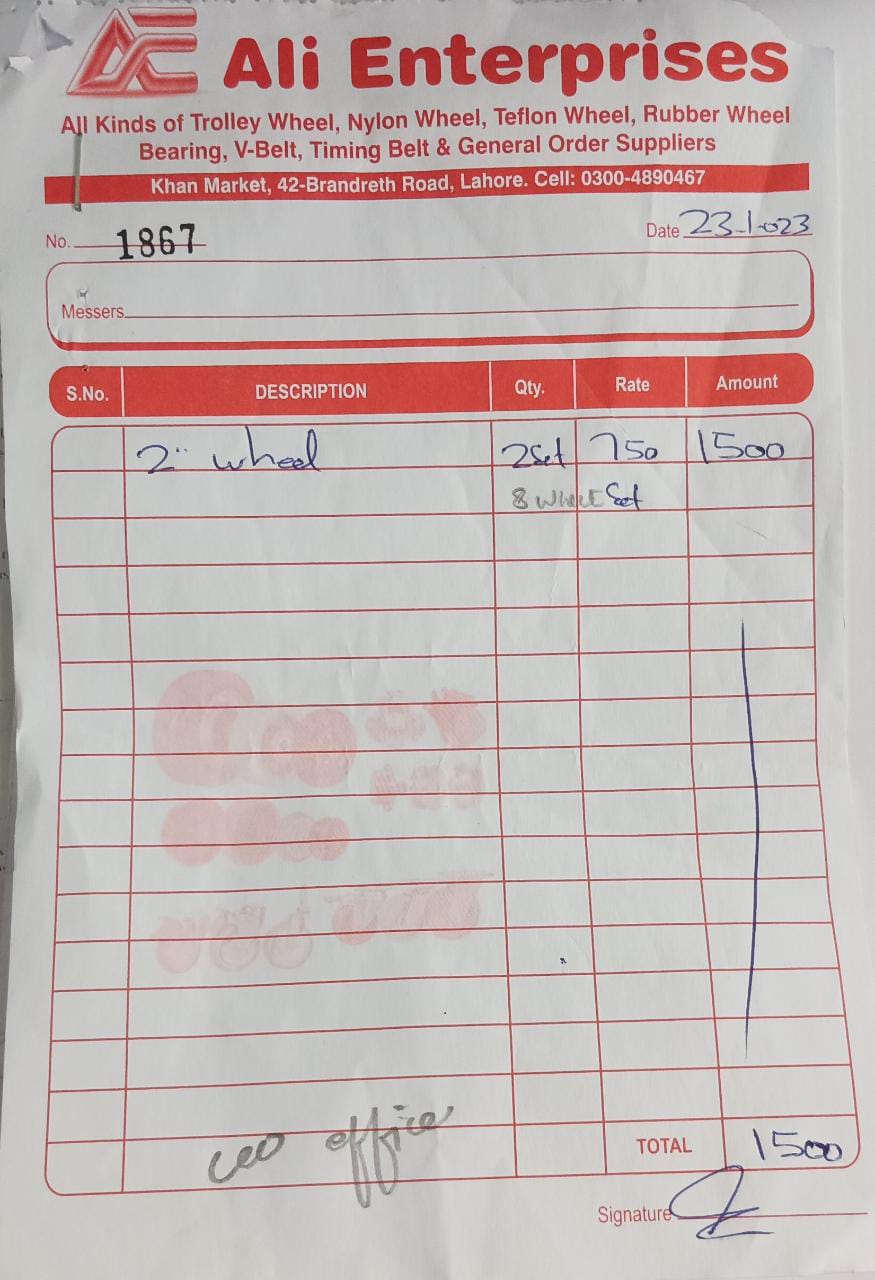 Ali Enterprises
All Kinds of Trolley Wheel, Nylon Wheel, Teflon Wheel, Rubber Wheel
Bearing, V-Belt, Timing Belt & General Order Suppliers
Khan Market, 42-Brandreth Road, Lahore. Cell: 0300-4890467
No. 1867 Date 23-1-023
Messers
S.No. DESCRIPTION Qty. Rate Amount
2" wheel 2Set 750 1500
8 wheel Set
ceo office
TOTAL 1500
Signature